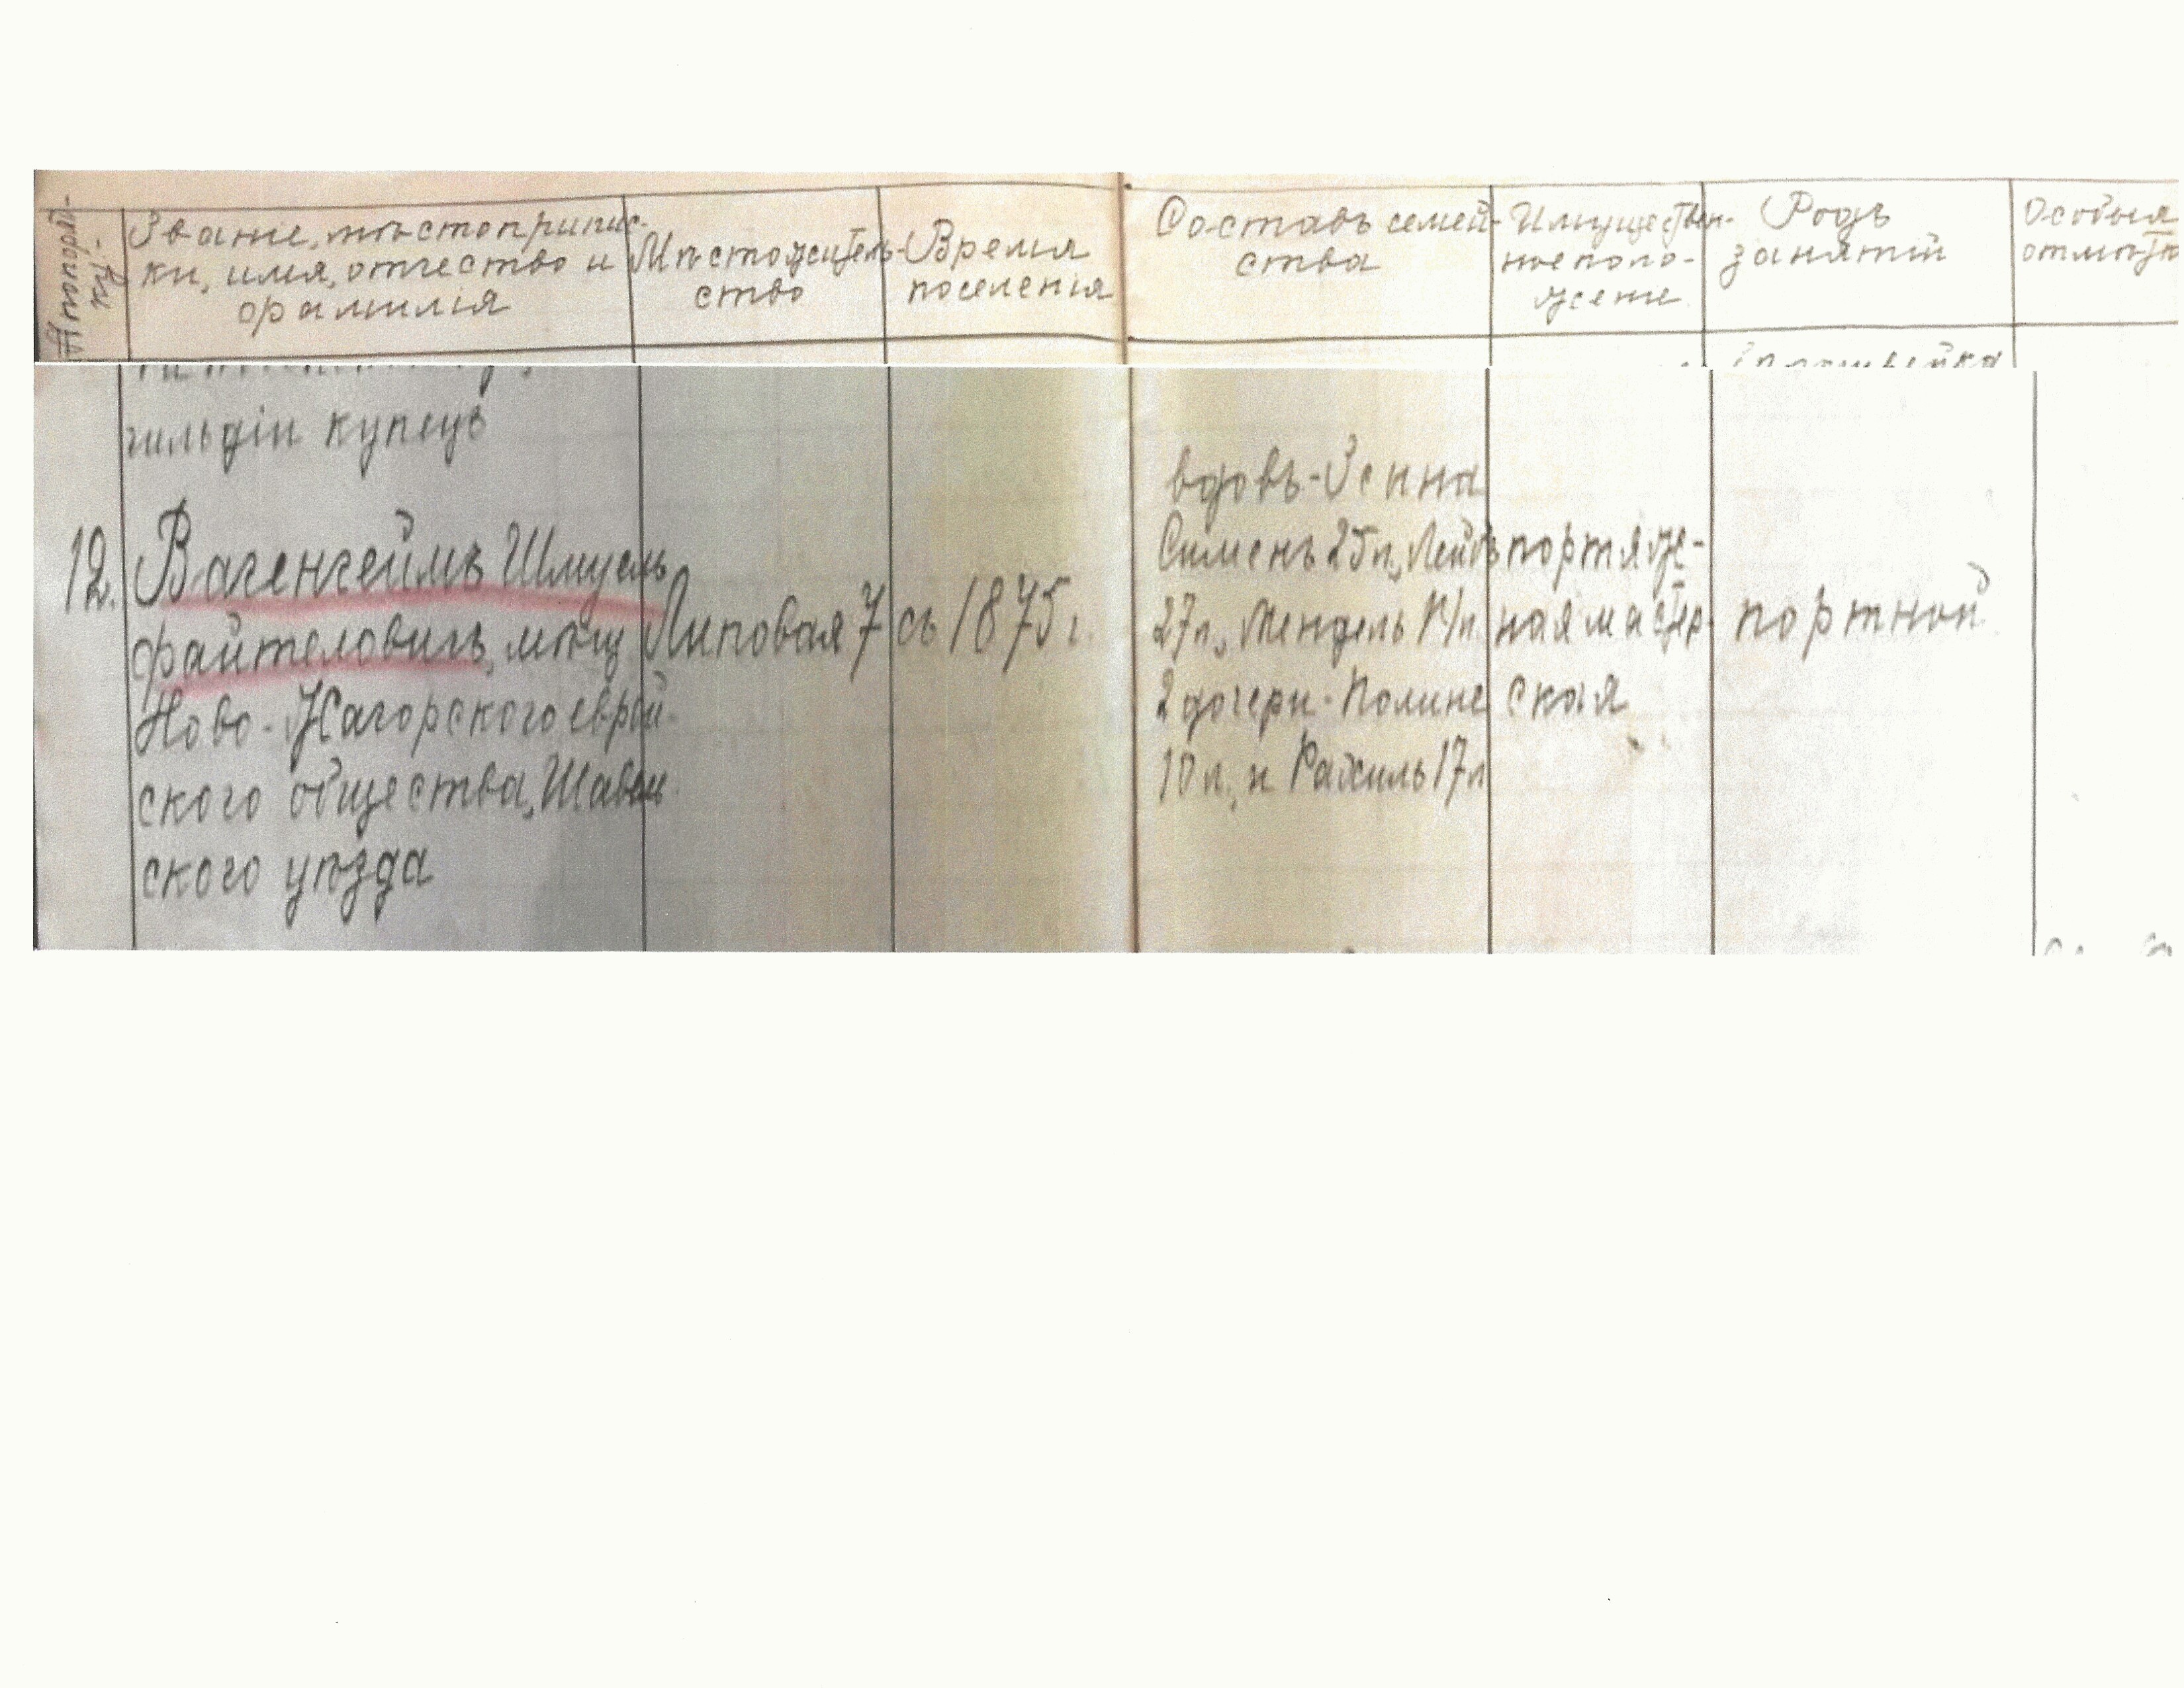 № по поряд-
ку.
Званіе, мѣстоприпис-
ки, имя, отчество и
фамилія
Мѣстожитель-
ство
Время
поселенія
Составъ семей-
ства
Имуществен-
ное поло-
женіе
Родъ
занятій
Особыя
отмѣтк
гильдіи купецъ
12.
Вагенгеймъ Шмуель
Файтеловичъ, мѣщ
Ново-Жагорского еврей-
ского общества, Шавель-
ского уѣзда
Липовая 7
съ 1875 г.
вдовъ-
Сименъ 25 л., Лейбъ
27 л., Мендель
2 дочери-Полине
10 л. и Рахиль 17 л
портяж-
ная мастер-
ская
портной